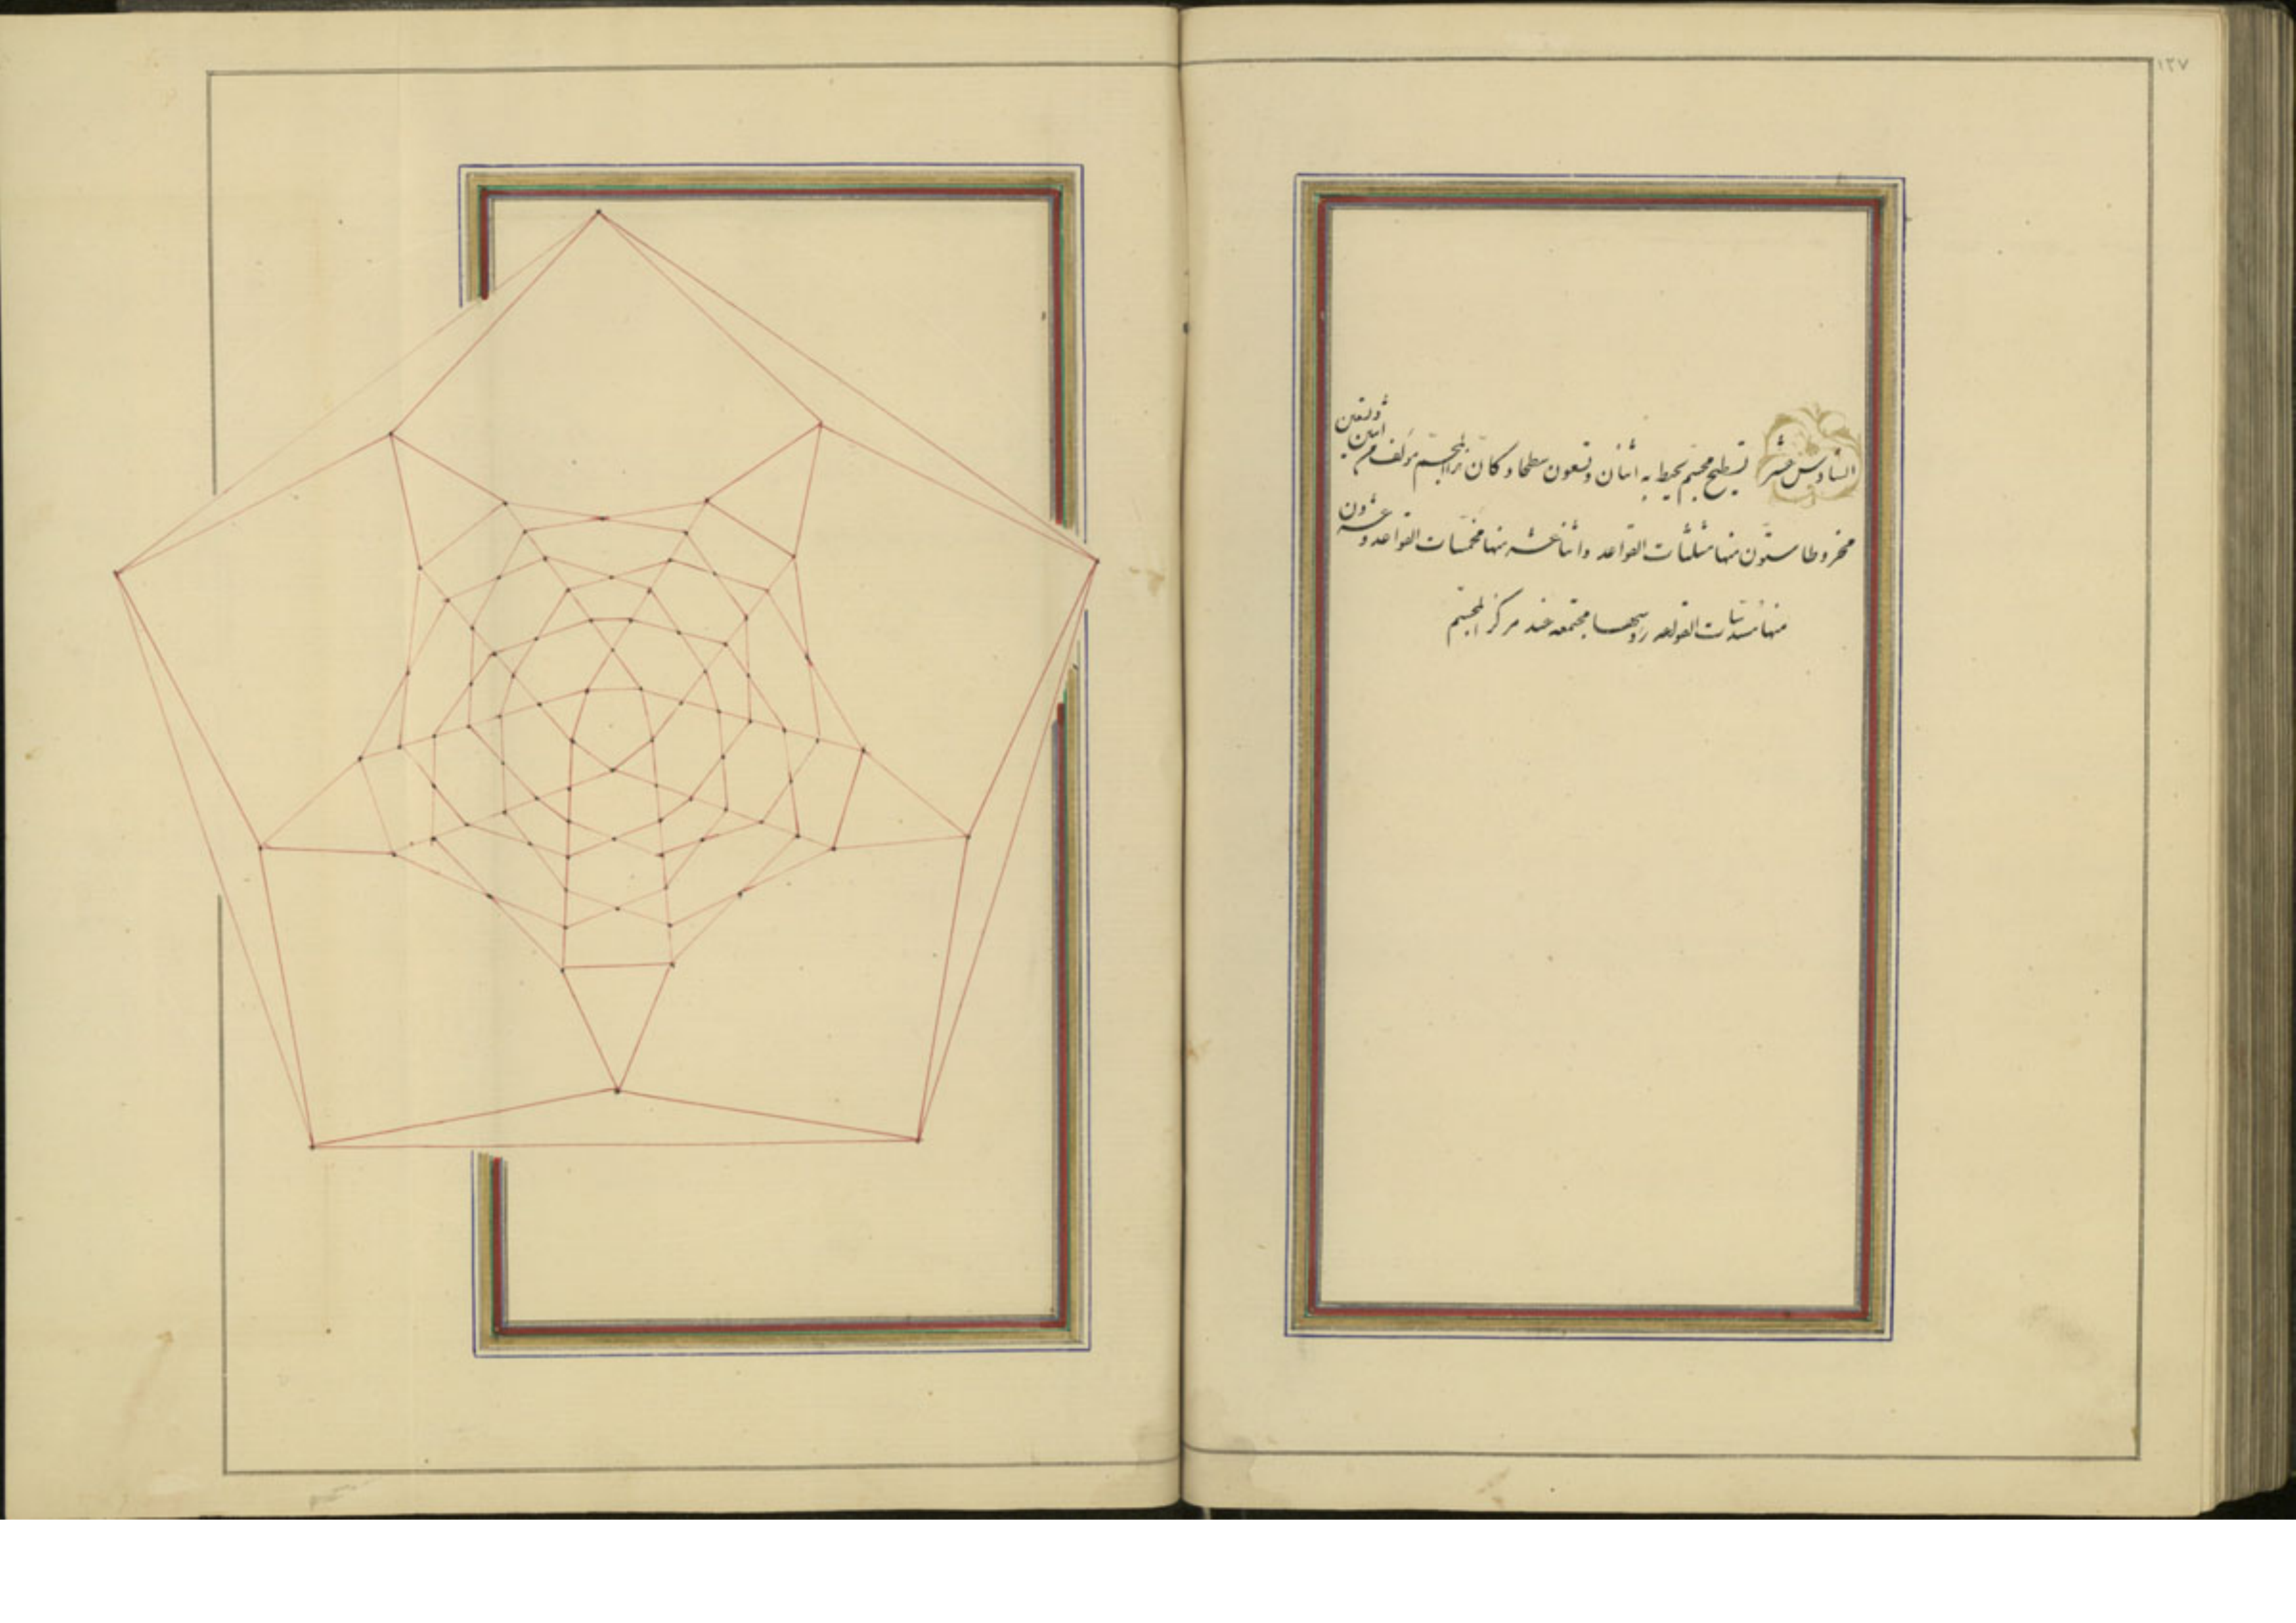 ١٢٧
السادس عشر تسطيح مجسم يحيط به اثنان وتسعون سطحا وكان ذلك المجسم مؤلف من اثنين وتسعين
مخروطا ستون منها مثلثات القواعد واثنا عشر منها مخمسات القواعد وعشرون
منها مسدسات القواعد رؤسها مجتمعه عند مركز المجسم